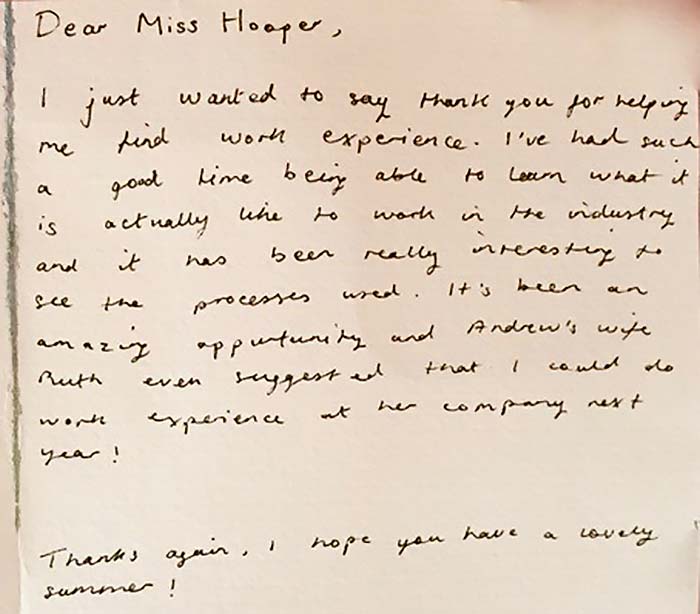 Dear Miss Hooper,
I just wanted to say thank you for helping
me find work experience. I've had such
a good time being able to learn what it
is actually like to work in the industry
and it has been really interesting to
see the processes used. It's been an
amazing oppurtunity and Andrew's wife
Ruth even suggested that I could do
work experience at her company next
year!
Thanks again, I hope you have a lovely
summer!